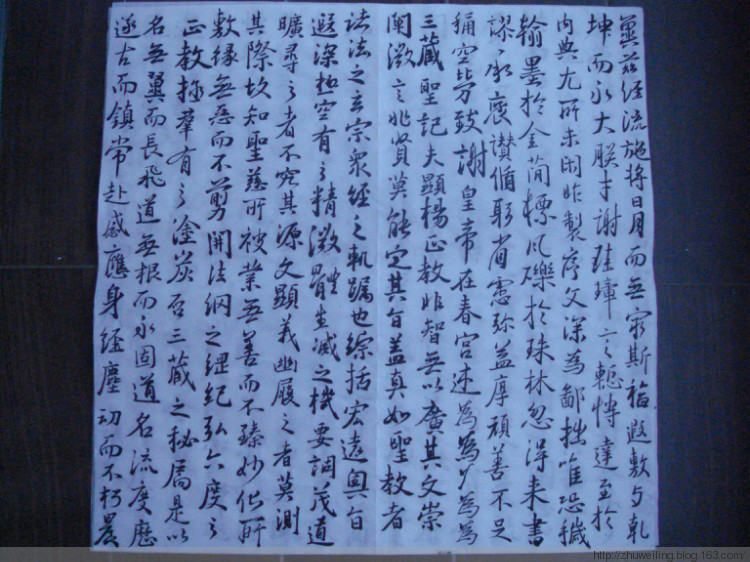 冀茲經流施將日月而無窮斯福遐敷与乾
坤而永大朕才謝珪璋言慚博達至於
内典尤所未閑昨製序文深為鄙拙唯恐穢
翰墨於金簡標瓦礫於珠林忽得来書
謬承褒讃循躬省慮弥益厚顔善不足
稱空勞致謝皇帝在春宮述為為為為
三藏聖記夫顯楊正教非智無以廣其文崇
闡微言非賢莫能定其旨盖真如聖教者
諸法之玄宗衆經之軌躅也綜括宏遠奧旨
遐深極空有之精微體生滅之機要詞茂道
曠尋之者不究其源文顯義幽履之者莫測
其際故知聖慈所被業無善而不臻妙化所
敷緣無惡而不剪開法網之綱紀弘六度之
正教拯羣有之塗炭啓三藏之秘扃是以
名無翼而長飛道無根而永固道名流慶歷
遂古而鎮常赴感應身經塵劫而不朽晨
http://zhuweiling.blog.163.com/